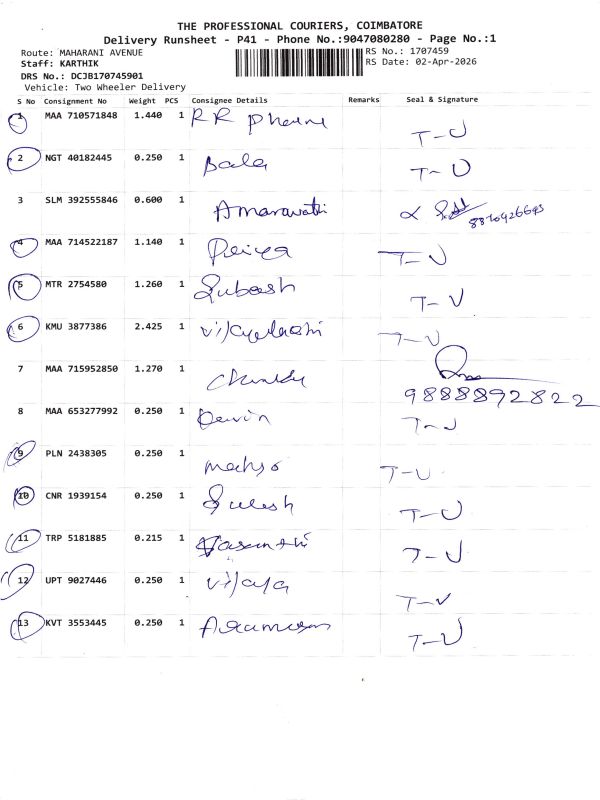 THE PROFESSIONAL COURIERS, COIMBATORE
Delivery Runsheet - P41 - Phone No.:9047080280 - Page No.:1
Route: MAHARANI AVENUE RS No.: 1707459
Staff: KARTHIK RS Date: 02-Apr-2026
DRS No.: DCJB170745901
Vehicle: Two Wheeler Delivery
S No Consignment No Weight PCS Consignee Details Remarks Seal & Signature
1 MAA 710571848 1.440 1 RR T-U
2 NGT 40182445 0.250 1 Bala T-U
3 SLM 392555846 0.600 1 Amaravathi
4 MAA 714522187 1.140 1 Priya T-U
5 MTR 2754580 1.260 1 Subash T-U
6 KMU 3877386 2.425 1 T-U
7 MAA 715952850 1.270 1
9888892822
8 MAA 653277992 0.250 1 T-U
9 PLN 2438305 0.250 1 T-U
10 CNR 1939154 0.250 1 T-U
11 TRP 5181885 0.215 1 Vasanthi T-U
12 UPT 9027446 0.250 1 Vijaya T-U
13 KVT 3553445 0.250 1 T-U